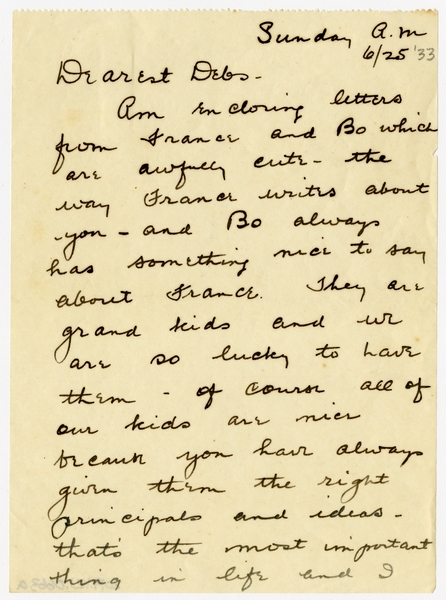 Sunday A.M
6/25 '33
Dearest Debs -
Am enclosing letters
from France and Bo which
are awfully cute - the
way France writes about
you - and Bo always
has something nice to say
about France. They are
grand kids and we
are so lucky to have
them - of course all of
our kids are nice
because you have always
given them the right
principals and ideas -
that's the most important
thing in life and I